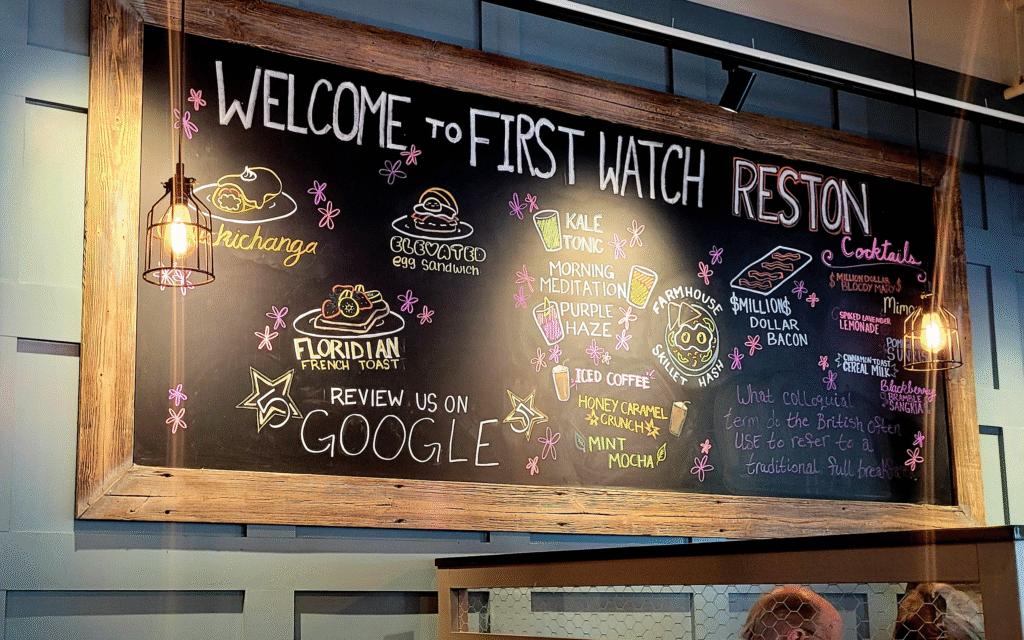 WELCOME TO FIRST WATCH RESTON
ELEVATED
egg sandwich
FLORIDIAN
FRENCH TOAST
REVIEW US ON
GOOGLE
5
5
KALE
TONIC
MORNING
MEDITATION
PURPLE
HAZE
ICED COFFEE
HONEY CARAMEL
CRUNCH
MINT
MOCHA
FARMHOUSE
SKILLET HASH
$MILLION$
DOLLAR
BACON
Cocktails
$MILLION DOLLAR
BLOODY MARY$
SPIKED LAVENDER
LEMONADE
CINNAMON TOAST
CEREAL MILK
Blackberry
BRAMBLE
SANGRIA
What colloquial
term do the British often
USE to refer to a
traditional full